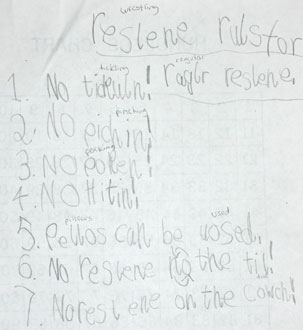 wrestling
reslene rulsfor
tickling regular
1. No tideuln! raglr reslene.
pinching
2. NO pichin!
pocking
3. NO poken!
4. NO Hitin!
pillows used
5. Pellos can be uosed.
6. No reslene the til!
7. No reslene on the cowch!